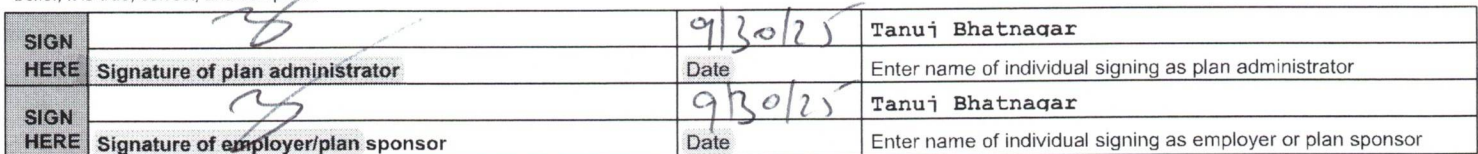 SIGN 9/30/25 Tanuj Bhatnagar
HERE Signature of plan administrator Date Enter name of individual signing as plan administrator
SIGN 9/30/25 Tanuj Bhatnagar
HERE Signature of employer/plan sponsor Date Enter name of individual signing as employer or plan sponsor